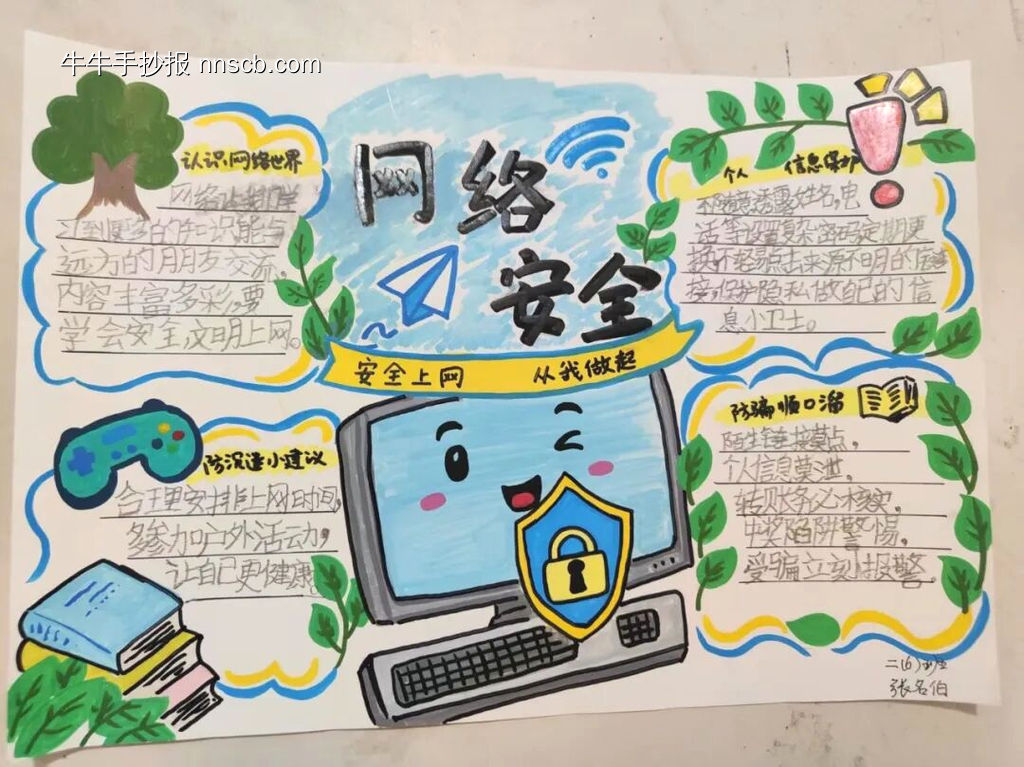 牛牛手抄报 nnscb.com
网络
安全
安全上网 从我做起
认识网络世界
网络让我们学
习到更多的知识能与
远方的朋友交流,
内容丰富多彩,要
学会安全文明上网。
个人信息保护
不随意透露姓名,电
话等设置复杂密码定期更
换不轻易点击来源不明的链
接保护隐私做自己的信
息小卫士。
防沉迷小建议
合理安排上网时间,
多参加户外活动,
让自己更健康。
防骗顺口溜
陌生链接莫点,
个人信息莫泄,
转账务必核实,
中奖陷阱警惕,
受骗立刻报警。
二(6)班
张名伯